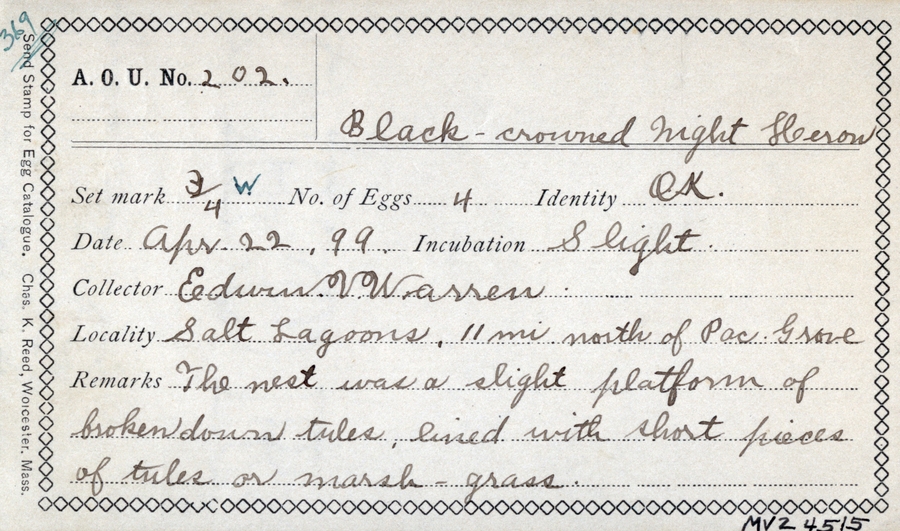 369
A. O. U. No. 202.
Black-crowned Night Heron
Set mark 3/4 W No. of Eggs 4 Identity OK.
Date Apr. 22, 99. Incubation Slight.
Collector Edwin V Warren.
Locality Salt Lagoons, 11 mi north of Pac. Grove
Remarks The nest was a slight platform of
broken down tules, lined with short pieces
of tules or marsh-grass.
Send Stamp for Egg Catalogue. Chas. K. Reed, Worcester, Mass.
MVZ 4515